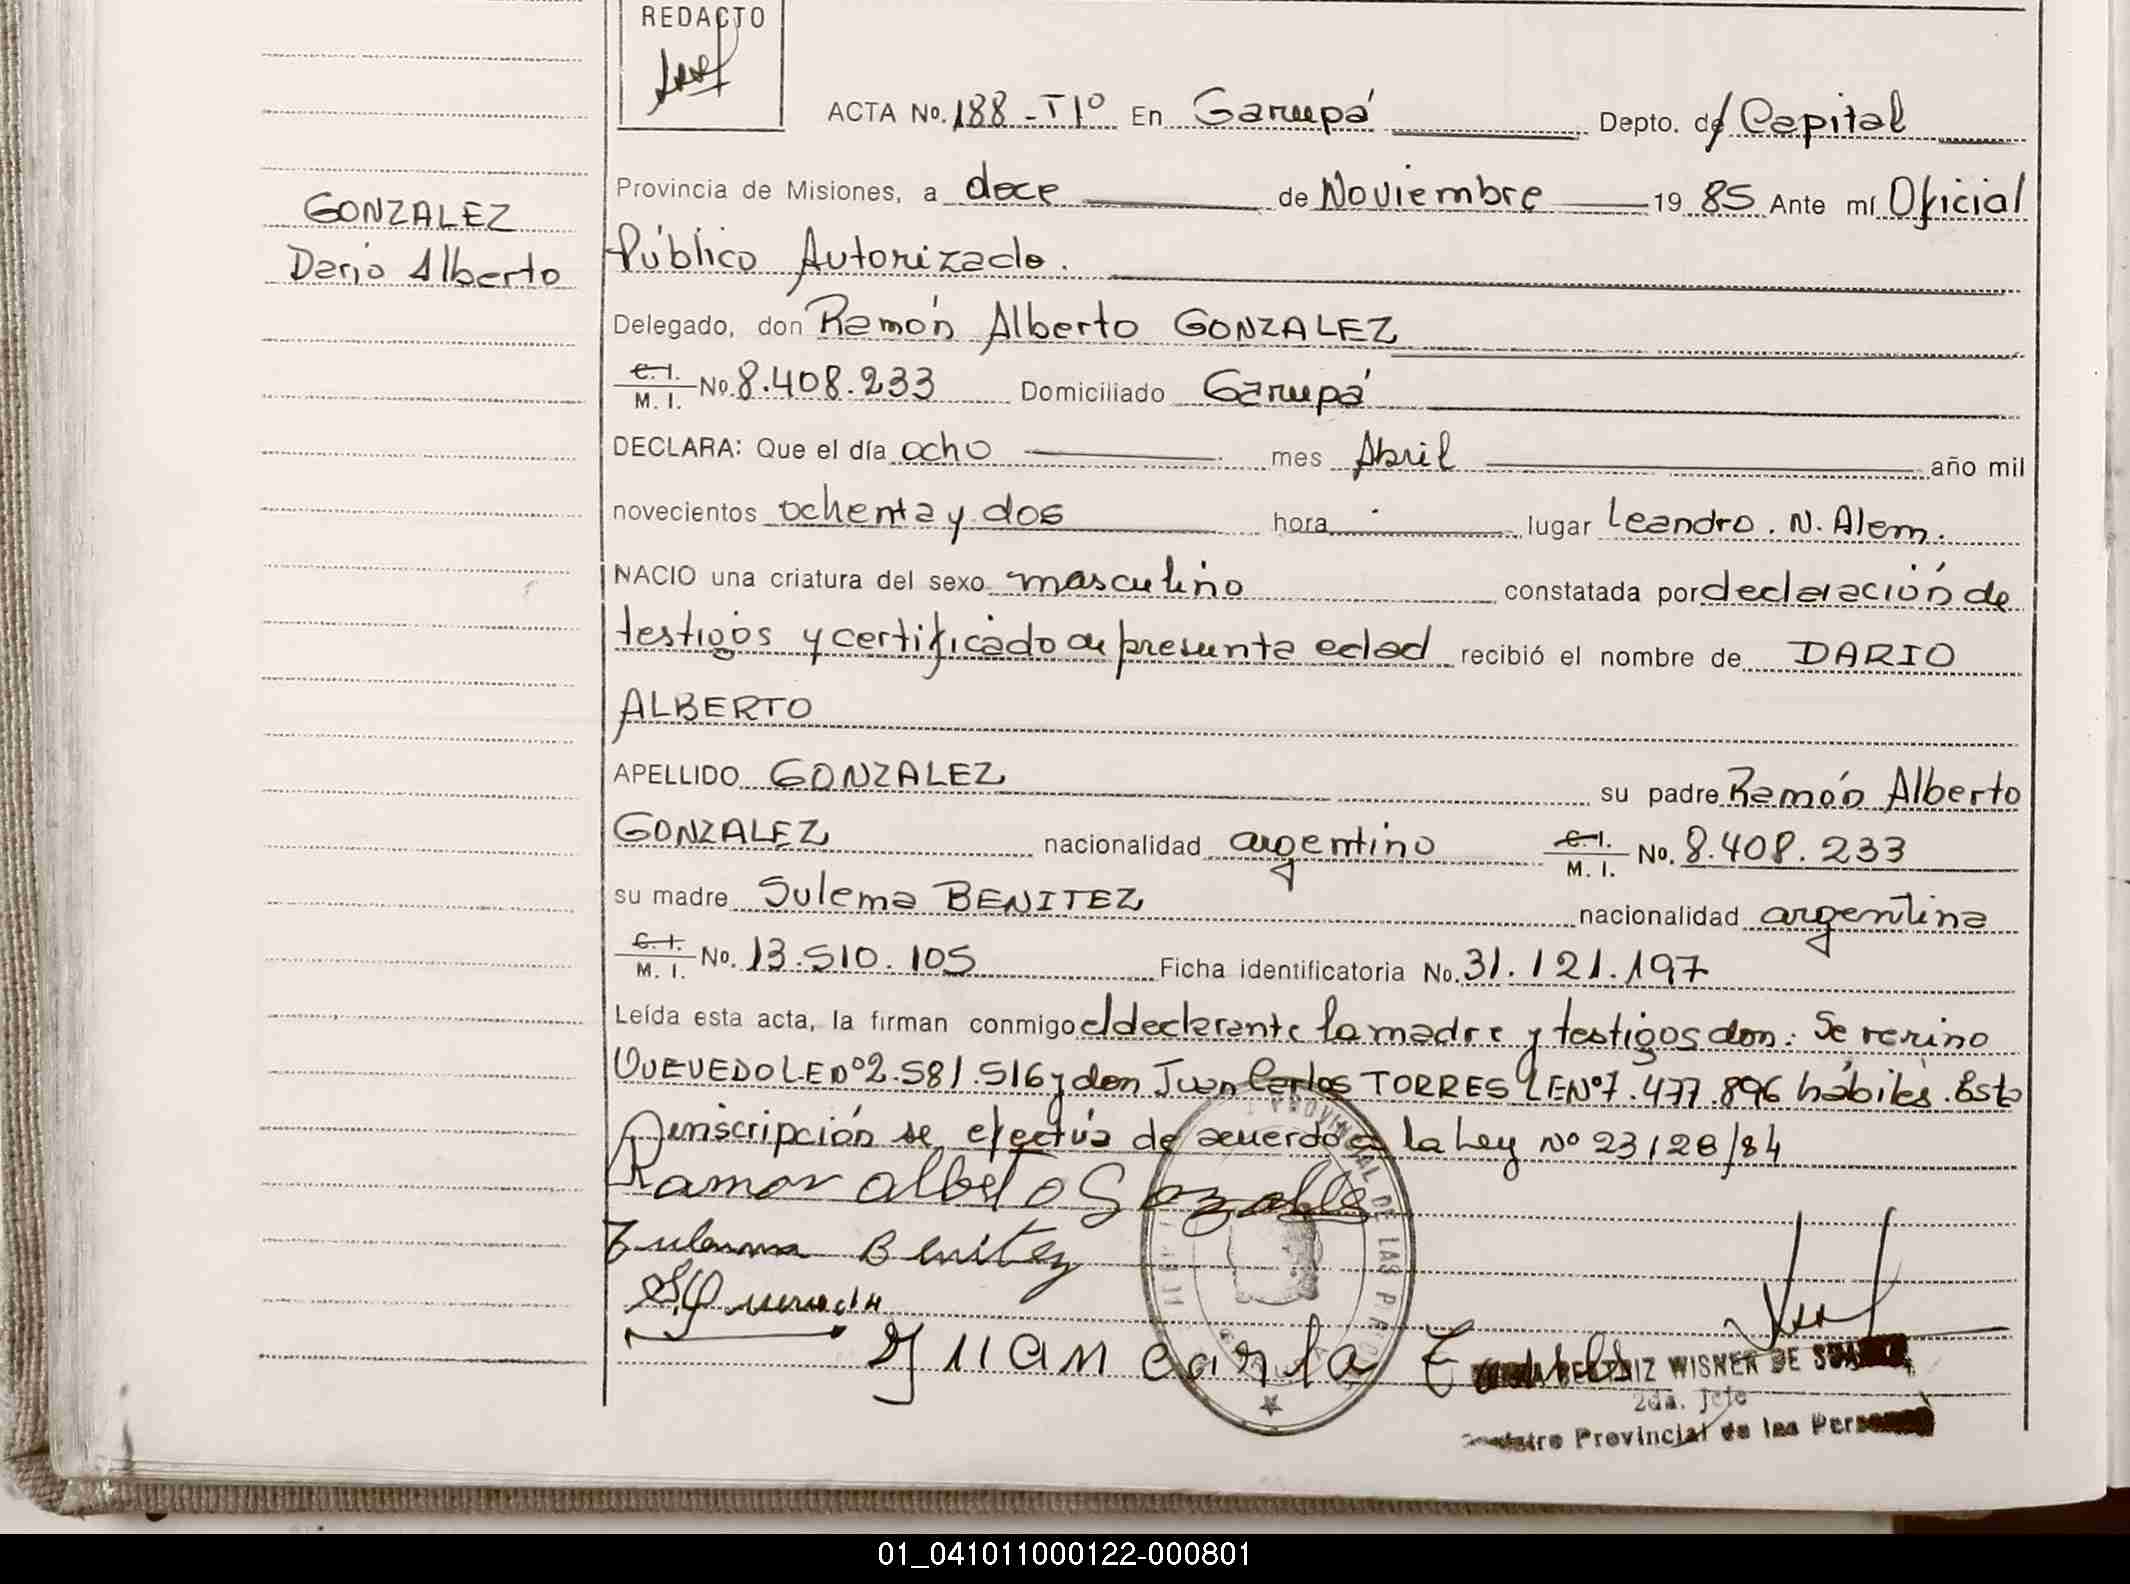 REDACTO
ACTA No. 188 - T1º En Garupá Depto. de Capital
Provincia de Misiones, a doce de Noviembre 19 85 Ante mí Oficial
GONZALEZ
Público Autorizado.
Dario Alberto
Delegado, don Ramón Alberto GONZALEZ
C. I.
M. I. No. 8.408.233 Domiciliado Garupá
DECLARA: Que el día ocho mes Abril año mil
novecientos ochenta y dos hora lugar Leandro. N. Alem.
NACIO una criatura del sexo masculino constatada por declaración de
testigos y certificado de presunta edad recibió el nombre de DARIO
ALBERTO
APELLIDO GONZALEZ su padre Ramón Alberto
GONZALEZ nacionalidad argentino C. I. M. I. No. 8.408.233
su madre Sulema BENITEZ nacionalidad argentina
C. I.
M. I. No. 13.510.105 Ficha identificatoria No. 31.121.197
Leída esta acta, la firman conmigo el declarante la madre y testigos don: Severino
QUEVEDO LE nº 2.581.516 y don Juan Carlos TORRES LE Nº 7.477.896 hábiles. Esta
inscripción se efectúa de acuerdo a la Ley Nº 23128/84
Ramon Alberto
Benitez
PROVINCIAL DE LAS
BEATRIZ WISNER DE
2da. Jefe
Provincial de las
01_041011000122-000801